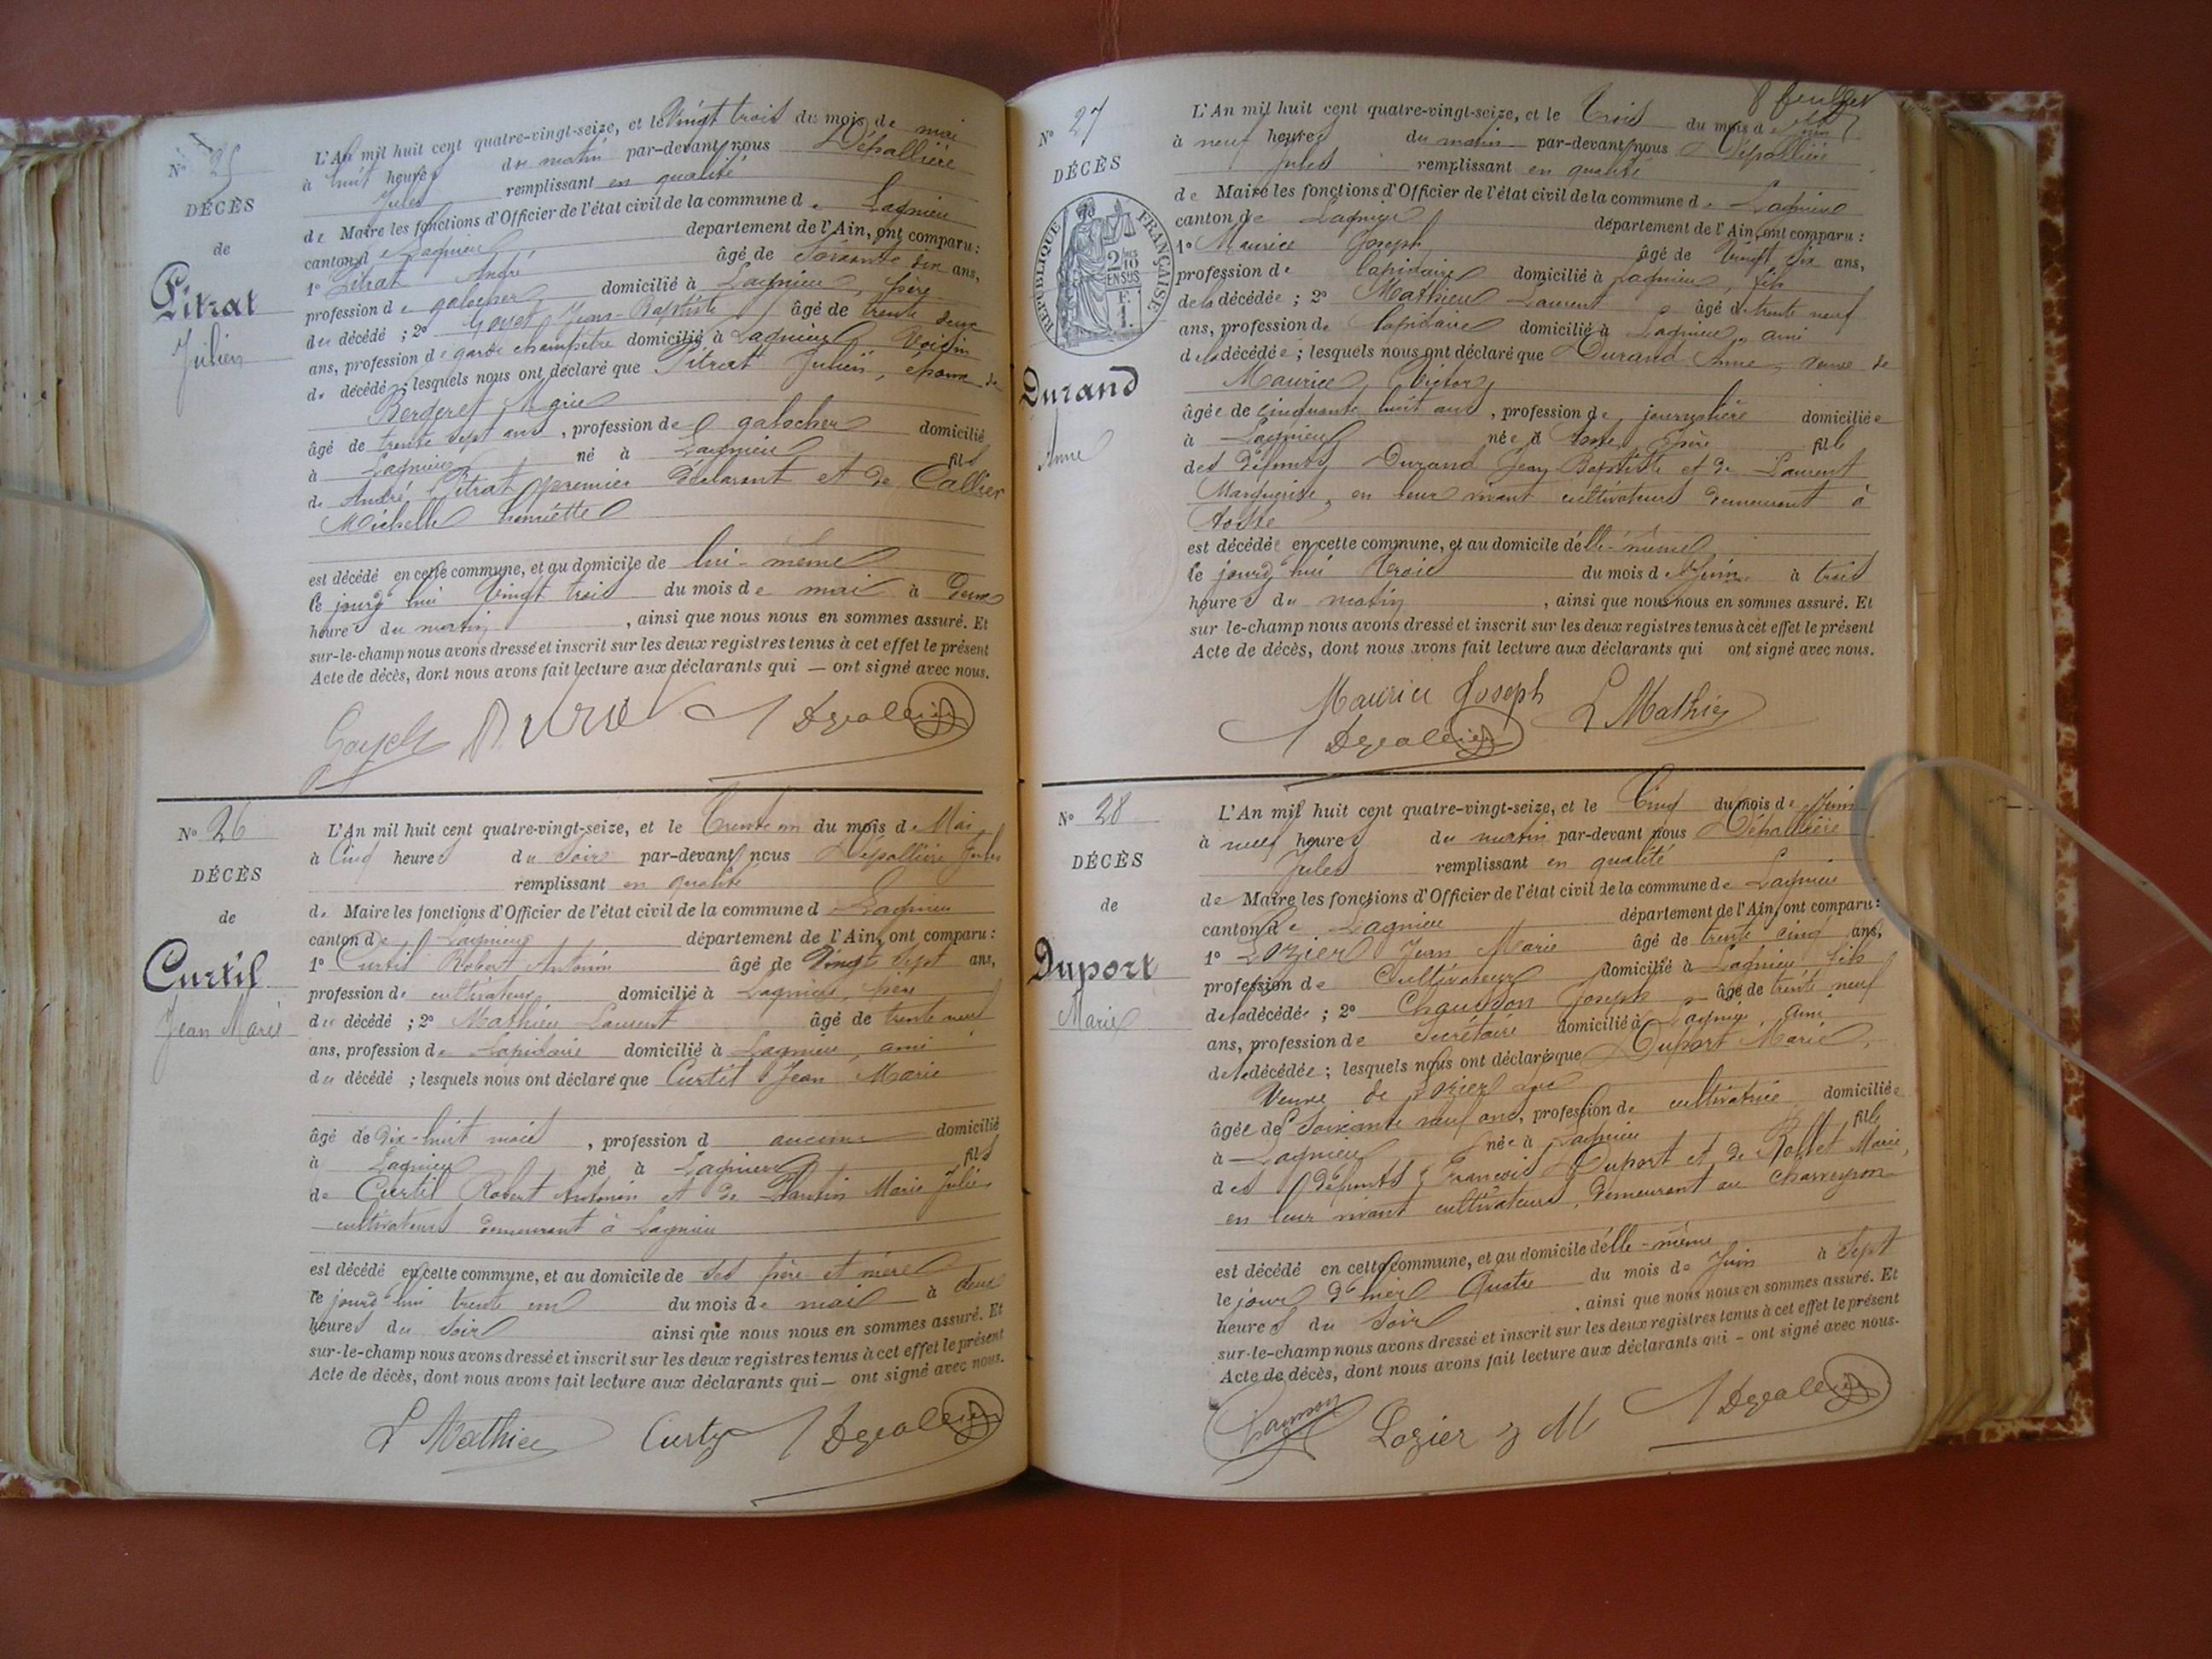 N° 25
DÉCÈS
de
Pitrat
Julien
L'An mil huit cent quatre-vingt-seize, et le Vingt trois du mois de mai
à huit heures du matin par-devant nous Dépallière
Jules remplissant en qualité
de Maire les fonctions d'Officier de l'état civil de la commune de Lagnieu
canton de Lagnieu département de l'Ain, ont comparu :
1° Pitrat André âgé de Soixante dix ans,
profession de galocher domicilié à Lagnieu, père
du décédé ; 2° Goyet Jean-Baptiste âgé de trente deux
ans, profession de garde champêtre domicilié à Lagnieu Voisin
du décédé ; lesquels nous ont déclaré que Pitrat Julien, époux de
Bergeret Marie
âgé de trente sept ans, profession de galocher domicilié
à Lagnieu né à Lagnieu fils
de André Pitrat premier déclarant et de Callier
Michelle henriette
est décédé en cette commune, et au domicile de lui-même
le jourd'hui Vingt trois du mois de mai à deux
heures du matin, ainsi que nous nous en sommes assuré. Et
sur-le-champ nous avons dressé et inscrit sur les deux registres tenus à cet effet le présent
Acte de décès, dont nous avons fait lecture aux déclarants qui — ont signé avec nous.
N° 26
DÉCÈS
de
Curtil
Jean Marie
L'An mil huit cent quatre-vingt-seize, et le Trente un du mois de Mai
à Cinq heures du soir par-devant nous Dépallière Jules
remplissant en qualité
de Maire les fonctions d'Officier de l'état civil de la commune d Lagnieu
canton de Lagnieu département de l'Ain, ont comparu :
1° Curtil Robert Antonin âgé de Vingt sept ans,
profession de cultivateur domicilié à Lagnieu, père
du décédé ; 2° Mathieu Laurent âgé de trente neuf
ans, profession de Lapidaire domicilié à Lagnieu, ami
du décédé ; lesquels nous ont déclaré que Curtil Jean Marie
âgé de Dix-huit mois, profession d aucune domicilié
à Lagnieu né à Lagnieu fils
de Curtil Robert Antonin et de Marie Julie
cultivateurs demeurant à Lagnieu
est décédé en cette commune, et au domicile de ses père et mère
le jourd'hui trente un du mois de mai à deux
heures du soir ainsi que nous nous en sommes assuré. Et
sur-le-champ nous avons dressé et inscrit sur les deux registres tenus à cet effet le présent
Acte de décès, dont nous avons fait lecture aux déclarants qui — ont signé avec nous.
L Mathieu
8 feuillet
N° 27
DÉCÈS
RÉPUBLIQUE FRANÇAISE
2/10 EN SUS
F. 1.
Durand
Anne
L'An mil huit cent quatre-vingt-seize, et le Trois du mois de Juin
à neuf heures du matin par-devant nous Dépallière
Jules remplissant en qualité
de Maire les fonctions d'Officier de l'état civil de la commune de Lagnieu
canton de Lagnieu département de l'Ain, ont comparu :
1° Maurice Joseph âgé de Vingt six ans,
profession de lapidaire domicilié à Lagnieu, fils
de la décédée ; 2° Mathieu Laurent âgé de trente neuf
ans, profession de lapidaire domicilié à Lagnieu, ami
de la décédée ; lesquels nous ont déclaré que Durand Anne, veuve de
Maurice Victor
âgée de cinquante huit ans, profession de journalière domiciliée
à Lagnieu née à Isère fille
des défunts Durand Jean Baptiste et de Laurent
Marguerite, en leur vivant cultivateurs demeurant à
est décédée en cette commune, et au domicile d'elle-même
le jourd'hui trois du mois de Juin à trois
heures du matin, ainsi que nous nous en sommes assuré. Et
sur le-champ nous avons dressé et inscrit sur les deux registres tenus à cet effet le présent
Acte de décès, dont nous avons fait lecture aux déclarants qui ont signé avec nous.
Maurice Joseph L Mathieu
N° 28
DÉCÈS
de
Duport
Marie
L'An mil huit cent quatre-vingt-seize, et le Cinq du mois de Juin
à neuf heures du matin par-devant nous Dépallière
Jules remplissant en qualité
de Maire les fonctions d'Officier de l'état civil de la commune de Lagnieu
canton de Lagnieu département de l'Ain, ont comparu :
1° Lozier Jean Marie âgé de trente cinq ans,
profession de Cultivateur domicilié à Lagnieu fils
de la décédée ; 2° Chausson Joseph âgé de trente neuf
ans, profession de Secrétaire domicilié à Lagnieu, ami
de la décédée ; lesquels nous ont déclaré que Duport Marie,
Veuve de Lozier
âgée de Soixante neuf ans, profession de cultivatrice domiciliée
à Lagnieu née à Lagnieu fille
des défunts François Duport et de Rollet Marie,
en leur vivant cultivateurs, demeurant au Charveyron
est décédé en cette commune, et au domicile d'elle-même
le jour d'hier Quatre du mois de Juin à Sept
heures du soir, ainsi que nous nous en sommes assuré. Et
sur-le-champ nous avons dressé et inscrit sur les deux registres tenus à cet effet le présent
Acte de décès, dont nous avons fait lecture aux déclarants qui — ont signé avec nous.
Lozier J M